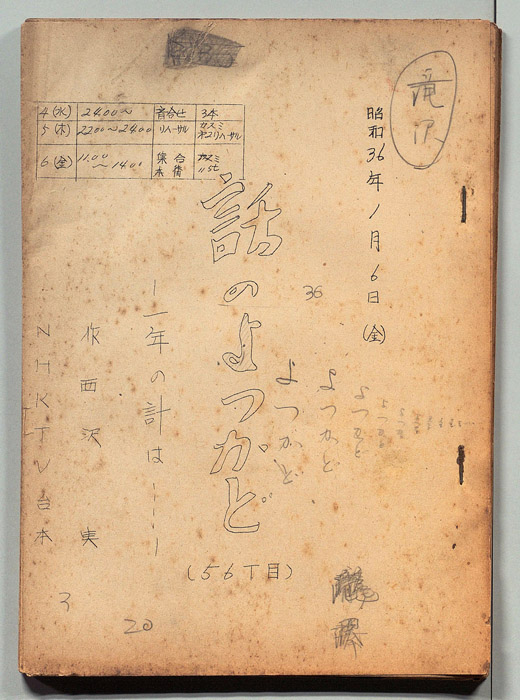 滝沢
昭和36年1月6日(金)
4(水) 24.00〜 音合せ 3本
5(木) 22.00〜24.00 リハーサル カスミ
6(金) 11.00〜14.00 集合 カスミ
本債 〃 st
話のよつかど
36
よつかど
よつかど
よつかど
よつかど
(56丁目)
一年の計は———
作 西沢 実
NHKTV台本
3
20